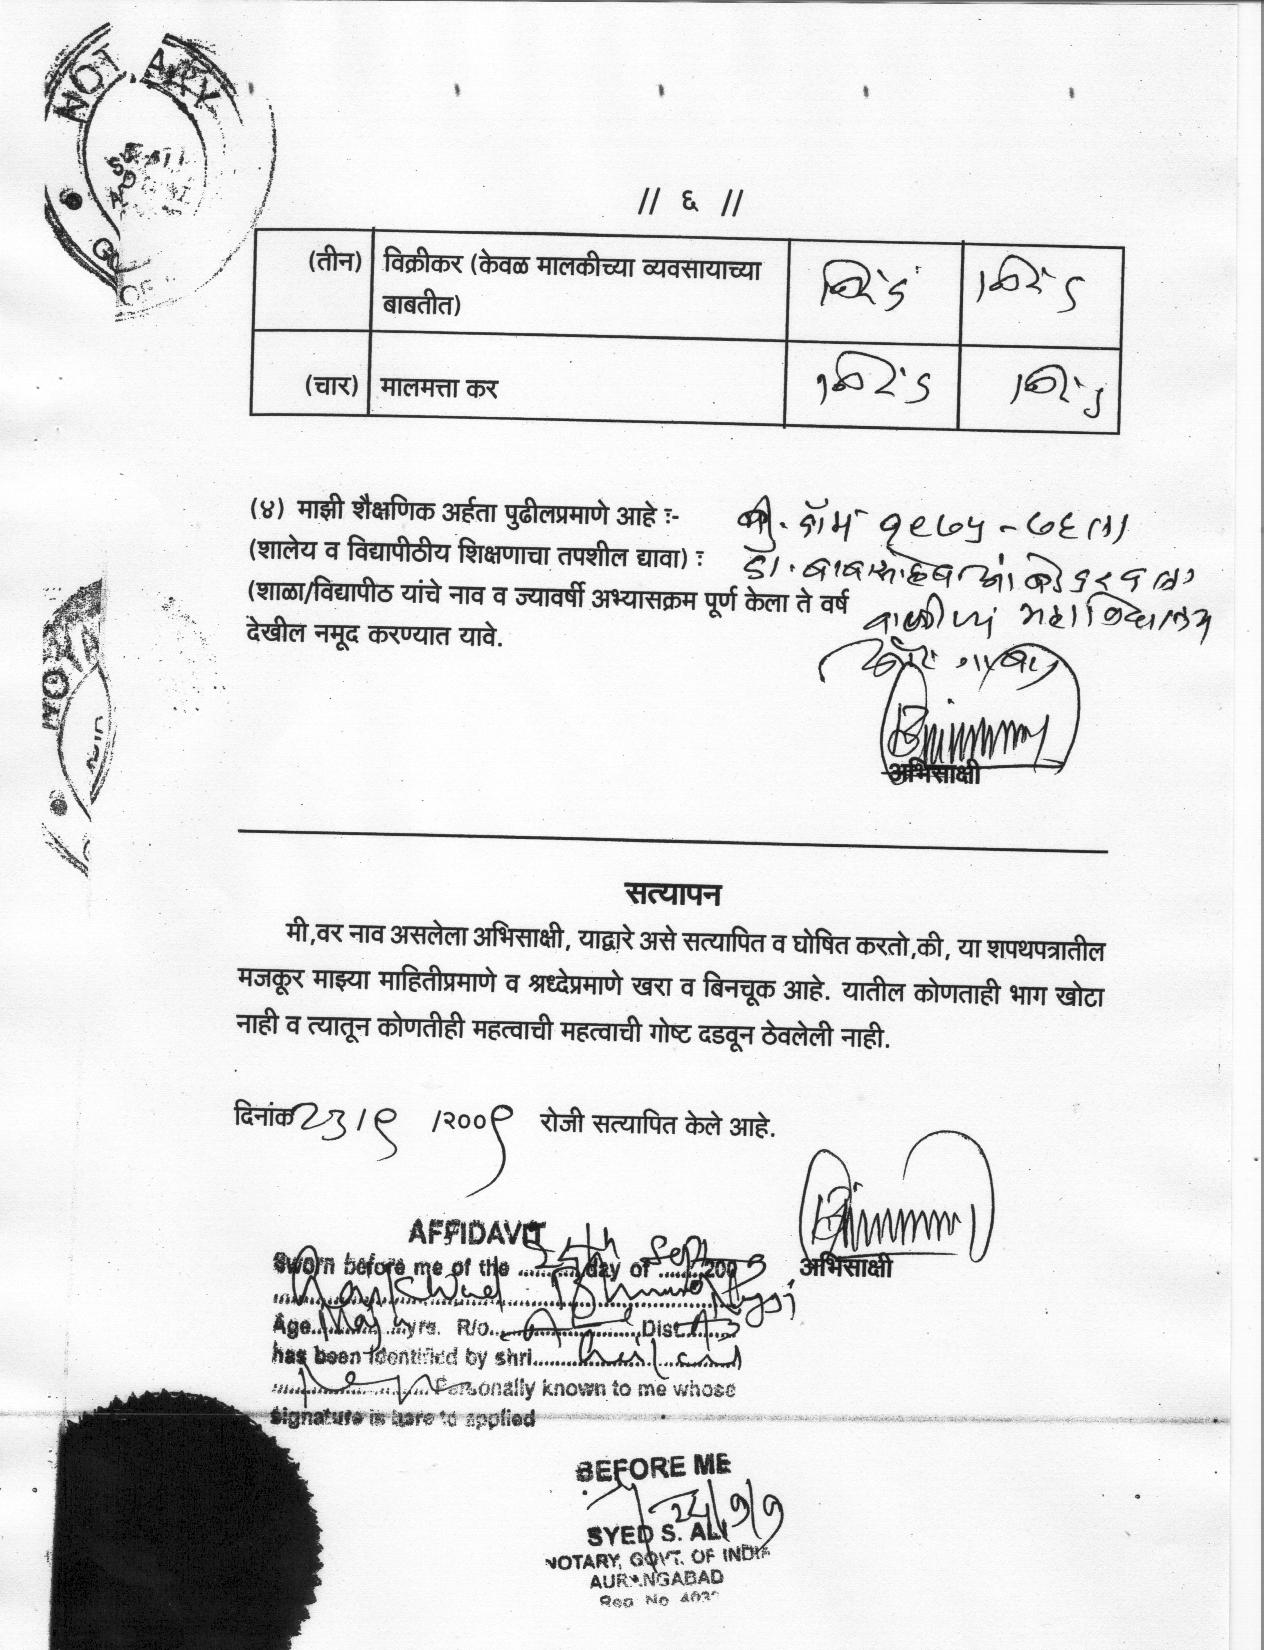 NOTARY
// ६ //
(तीन) विक्रीकर (केवळ मालकीच्या व्यवसायाच्या बाबतीत) निरंक निरंक
(चार) मालमत्ता कर निरंक निरंक
(४) माझी शैक्षणिक अर्हता पुढीलप्रमाणे आहे :- बी. कॉम १९७५ - ७६ ला
(शालेय व विद्यापीठीय शिक्षणाचा तपशील द्यावा) : डॉ. बाबासाहेब आंबेडकर कला
(शाळा/विद्यापीठ यांचे नाव व ज्यावर्षी अभ्यासक्रम पूर्ण केला ते वर्ष वाणीज्य महाविद्यालय
देखील नमूद करण्यात यावे.
अभिसाक्षी
सत्यापन
मी,वर नाव असलेला अभिसाक्षी, याद्वारे असे सत्यापित व घोषित करतो,की, या शपथपत्रातील
मजकूर माझ्या माहितीप्रमाणे व श्रध्देप्रमाणे खरा व बिनचूक आहे. यातील कोणताही भाग खोटा
नाही व त्यातून कोणतीही महत्वाची महत्वाची गोष्ट दडवून ठेवलेली नाही.
दिनांक २३/९ /२००९ रोजी सत्यापित केले आहे.
AFFIDAVIT
Sworn before me of the day of Sept 200
अभिसाक्षी
Age yrs. R/o Dist
has been identified by shri
Personally known to me whose
signature is here to applied
BEFORE ME
SYED S. ALI
NOTARY, GOVT. OF INDIA
AURANGABAD
Reg. No.